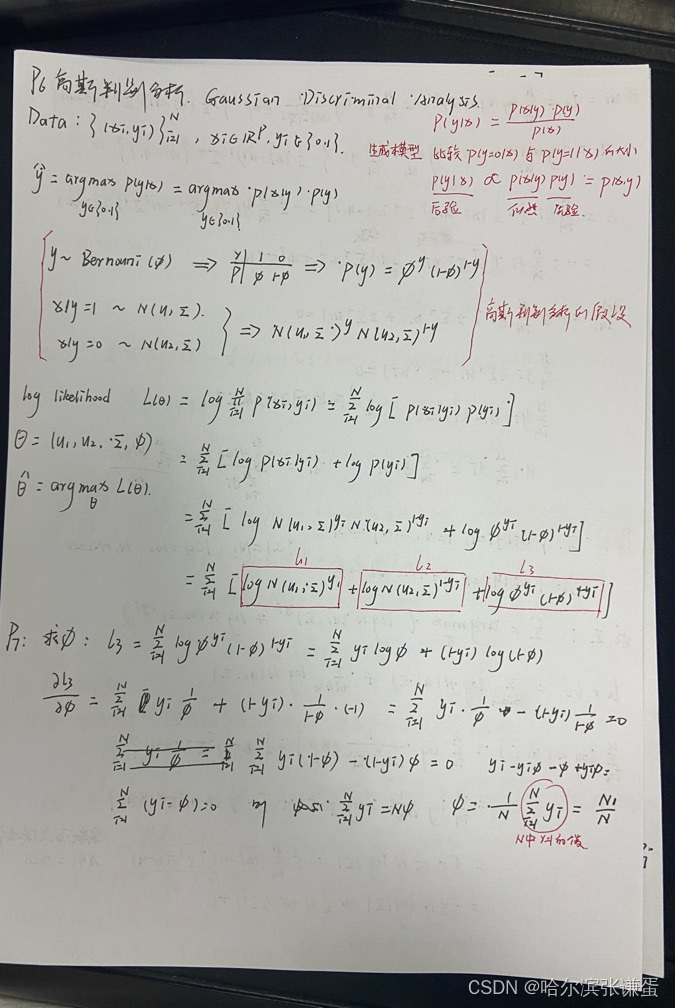 P6 高斯判别分析. Gaussian Discriminal Analysis.
Data: {(xi, yi)}_{i=1}^N , xi∈ℝ^P, yi∈{0,1}.
P(y|x) = P(x|y) P(y) / P(x)
生成模型 比较 P(y=0|x) 与 P(y=1|x) 的大小
ŷ = argmax_{y∈{0,1}} P(y|x) = argmax_{y∈{0,1}} P(x|y)·P(y)
P(y|x) ∝ P(x|y) P(y) = P(x,y)
后验 似然
y ~ Bernouni (φ) ⇒ y | 1 0
P | φ 1-φ ⇒ P(y) = φ^y (1-φ)^{1-y}
x|y=1 ~ N(u1, Σ).
x|y=0 ~ N(u2, Σ) } ⇒ N(u1, Σ)^y N(u2, Σ)^{1-y}
高斯判别分析的假设
log likelihood L(θ) = log ∏_{i=1}^N P(xi, yi) = Σ_{i=1}^N log [ P(xi|yi) P(yi) ]
θ = (u1, u2, Σ, φ) = Σ_{i=1}^N [ log P(xi|yi) + log P(yi) ]
θ̂ = argmax_θ L(θ).
= Σ_{i=1}^N [ log N(u1, Σ)^{yi} N(u2, Σ)^{1-yi} + log φ^{yi} (1-φ)^{1-yi} ]
L1 L2 L3
= Σ_{i=1}^N [ log N(u1, Σ)^{yi} + log N(u2, Σ)^{1-yi} + log φ^{yi} (1-φ)^{1-yi} ]
P7: 求φ: L3 = Σ_{i=1}^N log φ^{yi} (1-φ)^{1-yi} = Σ_{i=1}^N yi log φ + (1-yi) log(1-φ)
∂L3/∂φ = Σ_{i=1}^N yi 1/φ + (1-yi)· 1/(1-φ) ·(-1) = Σ_{i=1}^N yi · 1/φ - (1-yi) 1/(1-φ) = 0
Σ_{i=1}^N yi 1/φ = Σ_{i=1}^N yi(1-φ) - (1-yi)φ = 0 yi - yiφ - φ + yiφ =
Σ_{i=1}^N (yi-φ) = 0 Σ_{i=1}^N yi = Nφ φ = 1/N Σ_{i=1}^N yi = N1/N
CSDN @哈尔滨张谦蛋